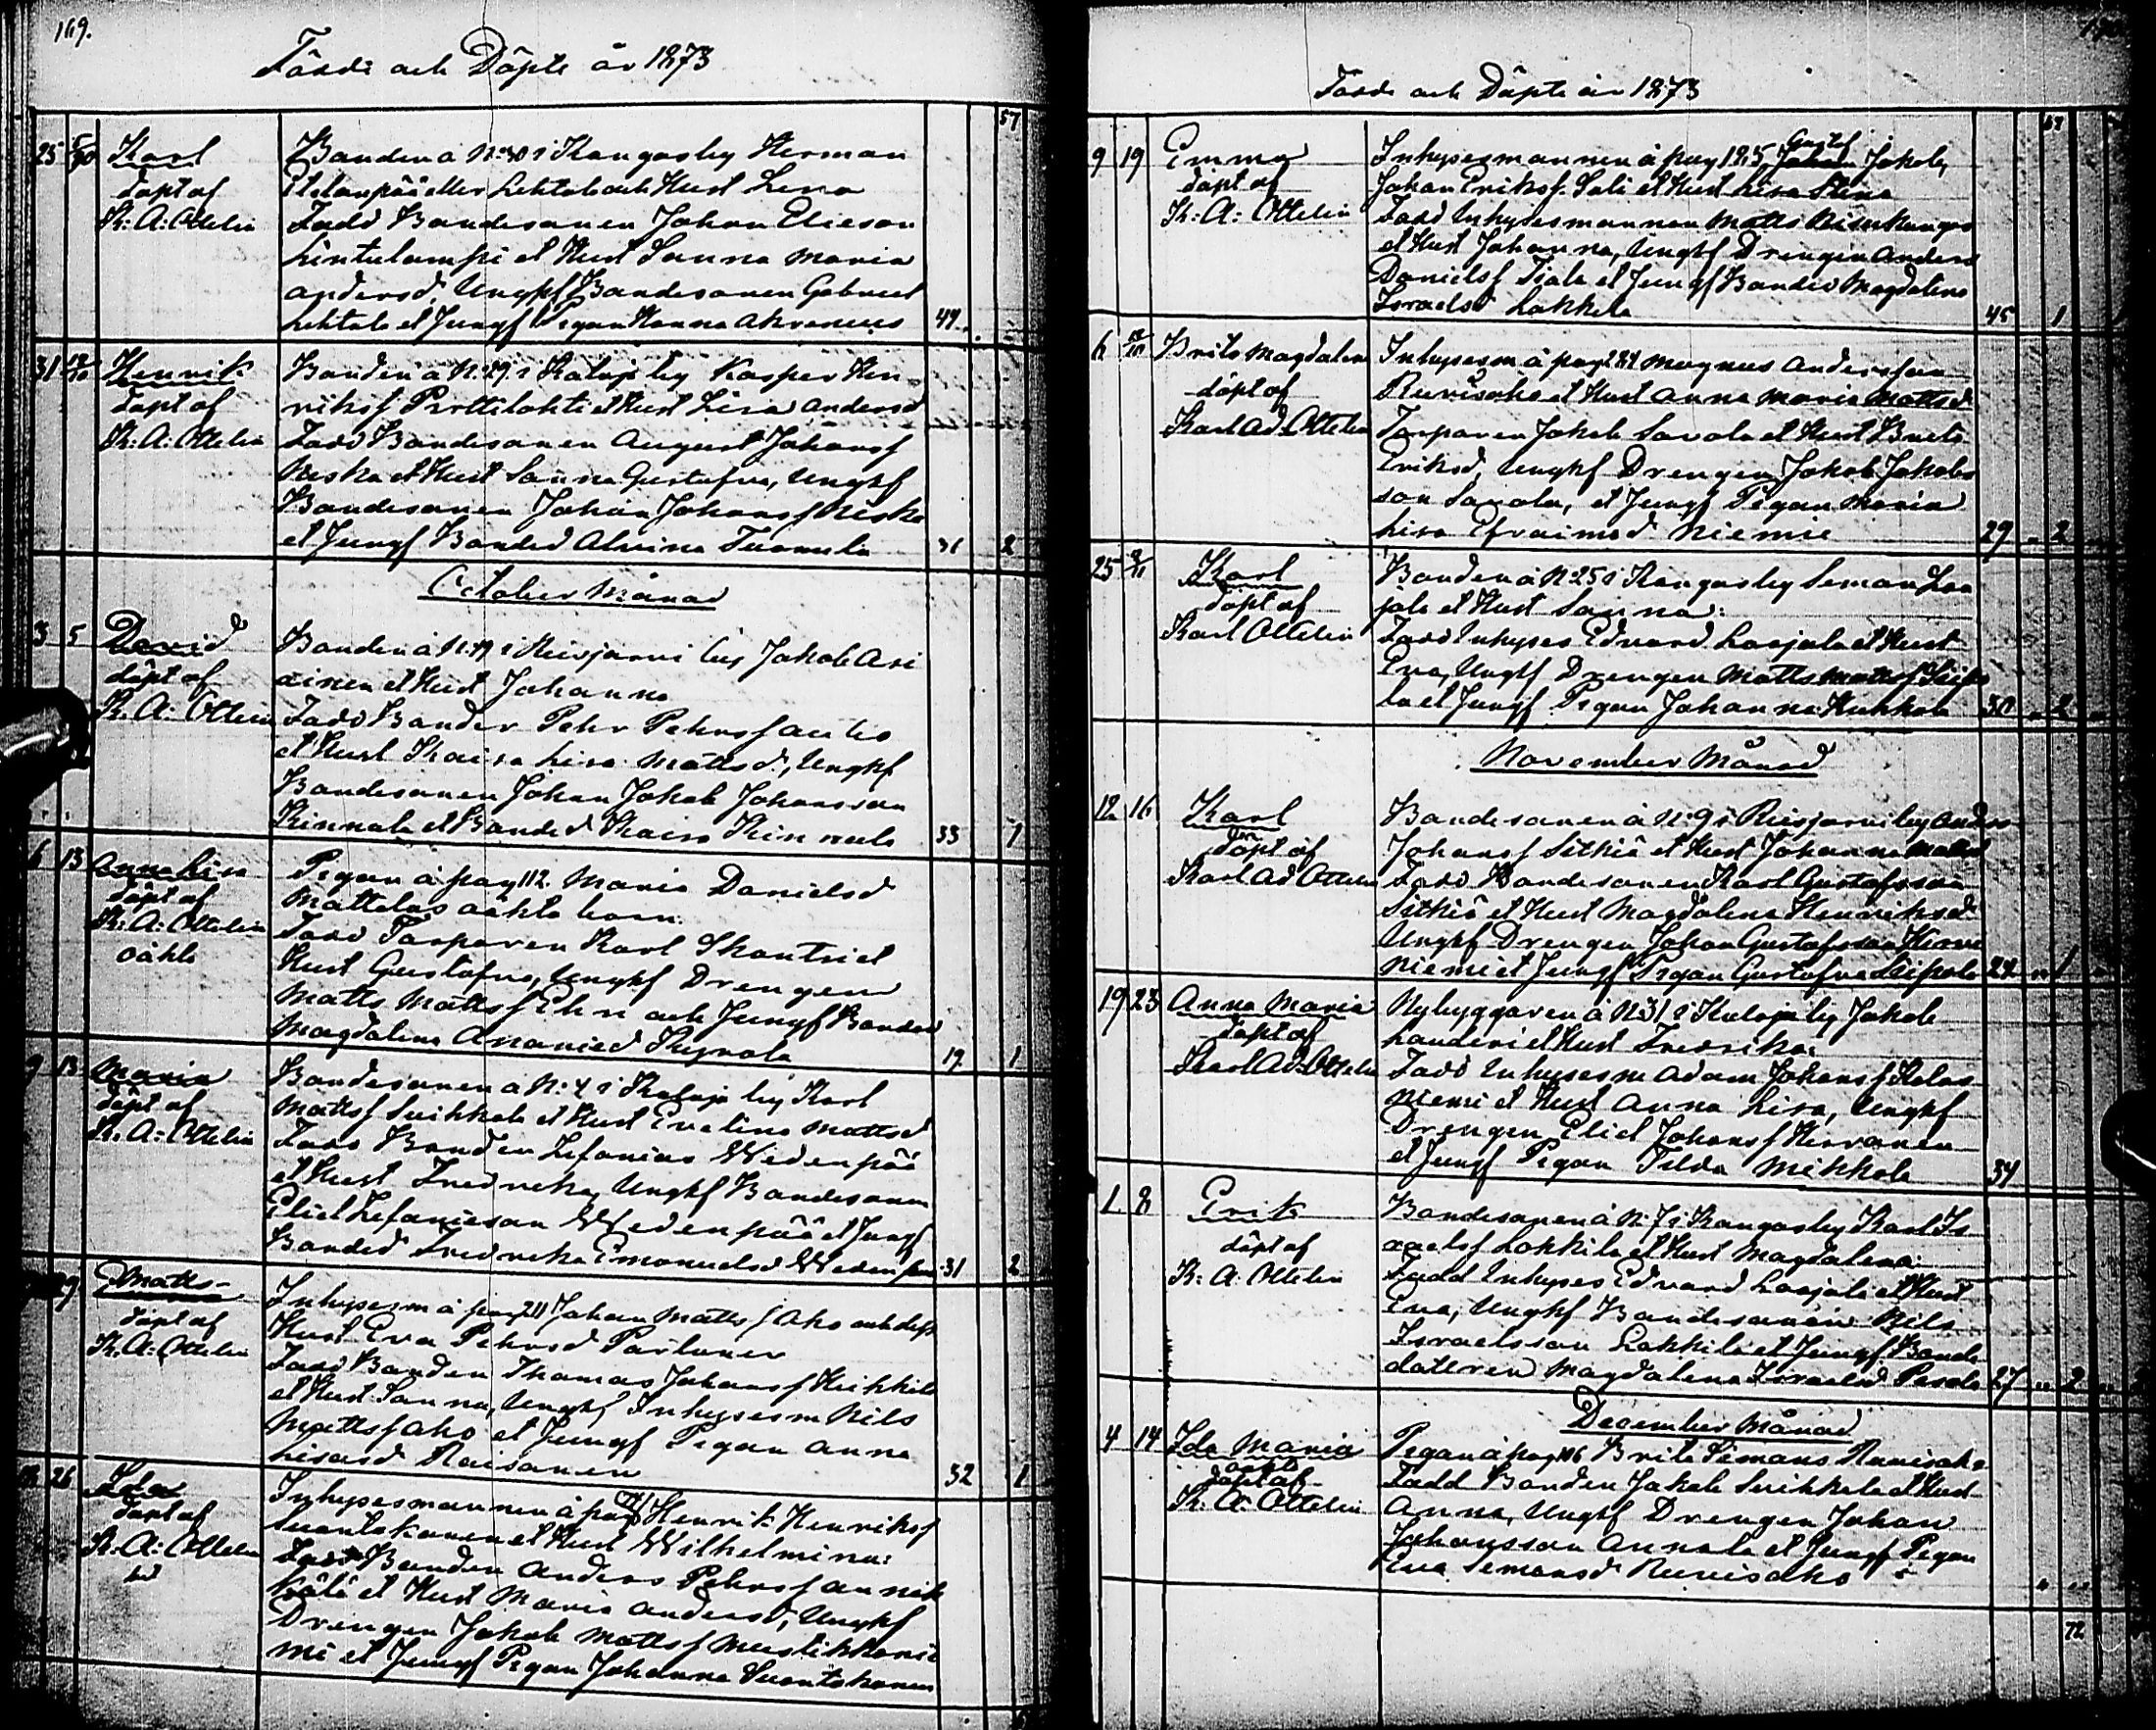 169.
Födde och Döpte år 1873
57
25 5/10 Karl
döpt af
K: A: Ottelin
Bonden å N:40 i Kangasby Herman
Etelänpää eller Lehtola och Hust Lena
Fadd Bondesonen Johan Elieson
Lintulampi et Hust Sanna Maria
Andersd, Ungkf Bondesonen Gabriel
Lehtola et Jungf Pigan Hanna
31 12/10 Henrik
döpt af
K: A: Ottelin
Bonden å N:29 i Kalaja by Kasper Hen
riksf Perttilahti et Hust Lisa Andersd
Fadd Bondesonen August Johansf
Niska et Hust Sanna Gustafva, Ungkf
Bondesonen Johan Johansf Niska
et Jungf Bonded Alvina Tuomala 36 2
October Månad
3 5 David
döpt af
K. A: Ottelin
Bonden å N:19 i Reisjärvi by Jakob Asi
ainen et Hust Johanna
Fadd Bonder Pehr Pehrsf Autio
et Hust Kaisa Lisa Mattsd, Ungkf
Bondesonen Johan Jakob Johansson
Kinnula et Bonded Kaisa Kinnula 33 1
6 13 Anna Lisa
döpt af
K: A: Ottelin
oäkta
Pigan å pag 112. Maria Danielsd
Mattelas oäkta barn.
Fadd Torparen Karl Skantsi et
Hust Gustafva, Ungkf Drengen
Matts Mattsf Elin och Jungf Bonded
Magdalena Ananied Kyrola 19 1
9 13 Maria
döpt af
K. A: Ottelin
Bondesonen å N:4 i Kalaja by Karl
Mattsf Suikkola et Hust Evelina Mattsd
Fadd Bonden Zefanias Wedenpää
et Hust Fredrika, Ungkf Bondesonen
Eliel Zefanieson Wedenpää et Jungf
Bonded Fredrika Emanuelsd Weden 31 2
Matts
döpt af
K. A: Ottelin
Inhysesm å pag 211 Johan Mattsf Aho och dess
Hust Eva Pehrsd Parkanen
Fadd Bonden Thomas Johansf Heikkilä
et Hust Sanna, Ungkf Inhysesm Nils
Mattsf Aho et Jungf Pigan Anna
Lisasd Raisanen 32 1
26 Ida
döpt af
K. A: Ottelin
Inhysesmannen å pag Henrik Henriksf
Suontakanen et Hust Wilhelmina:
Fadd Bonden Anders Pehrsf Annik
kälä et Hust Maria Andersd, Ungkf
Drengen Jakob Mattsf Mustikkanie
mi et Jungf Pigan Johanna Suontakanen
Födde och Döpte år 1873
9 19 Emma
döpt af
K: A: Ottelin
Inhysesmannen å pag 185 Gustof Jakob,
Johan Eriksf. Sali et Hust Lisa Stina
Fadd Inhysesmannen Matts Kangas
et Hust Johanna, Ungkf Drengen Anders
Danielsf Tiala et Jungf Bonded Magdalena
Israelsd Lokkila 45 1
6 Brita Magdalena
döpt af
Karl Ad. Ottelin
Inhysesm å pag 284 Magnus Andersson
Ruuisaho et Hust Anna Maria Mattsd
Torparen Jakob Savola et Hust Brita
Eriksd, Ungkf Drengen Jakob Jakobs
son Savola, et Jungf Pigan Maria
Lisa Efraimsd Niemie 29 2
25 2/11 Karl
döpt af
Karl Ottelin
Bonden å N:25 i Kangasby Seman Laa
jala et Hust Sanna:
Fadd Inhyses Edvard Laajala et Hust
Eva, Ungkf Drengen Matts Mattsf
la et Jungf Pigan Johanna Kukkola 30 2
November Månad
12 16 Karl
döpt af
Karl Ad Ottelin
Bondesonen å N:9 i Reisjärvi by Anders
Johansf Sitkiä et Hust Johanna Mattsd
Fadd Bondesonen Karl Gustafsson
Sitkiä et Hust Magdalena Henriksd
Ungkf Drengen Johan Gustafsson
Niemi et Jungf Pigan Gustafva Leipala 24 1
19 23 Anna Maria
döpt af
Karl Ad. Ottelin
Nybyggaren å N:31 i Kalaja by Jakob
Landeri et Hust Fredrika:
Fadd Inhysesm Adam Johansf Kalas
niemi et Hust Anna Lisa, Ungkf
Drengen Eliel Johansf Hirvonen
et Jungf Pigan Tilda Mikkola 34
1 8 Erik
döpt af
K. A: Ottelin
Bondesonen å N:7 i Kangasby Karl Is
raelsf Lokkila et Hust Magdalena:
Fadd Inhyses Edvard Laajala et Hust
Eva, Ungkf Bondesonen Nils
Israelsson Lokkila et Jungf Bonde
dotteren Magdalena Israelsd Pesola 27 2
December Månad
4 14 Ida Maria
oäkta
döpt af
K. A: Ottelin
Pigan å pag 116 Brita Simons Ruuisaho
Fadd Bonden Jakob Suikkola et Hust
Anna, Ungkf Drengen Johan
Johansson Annala et Jungf Pigan
Eva Semansd Ruuisaho
72